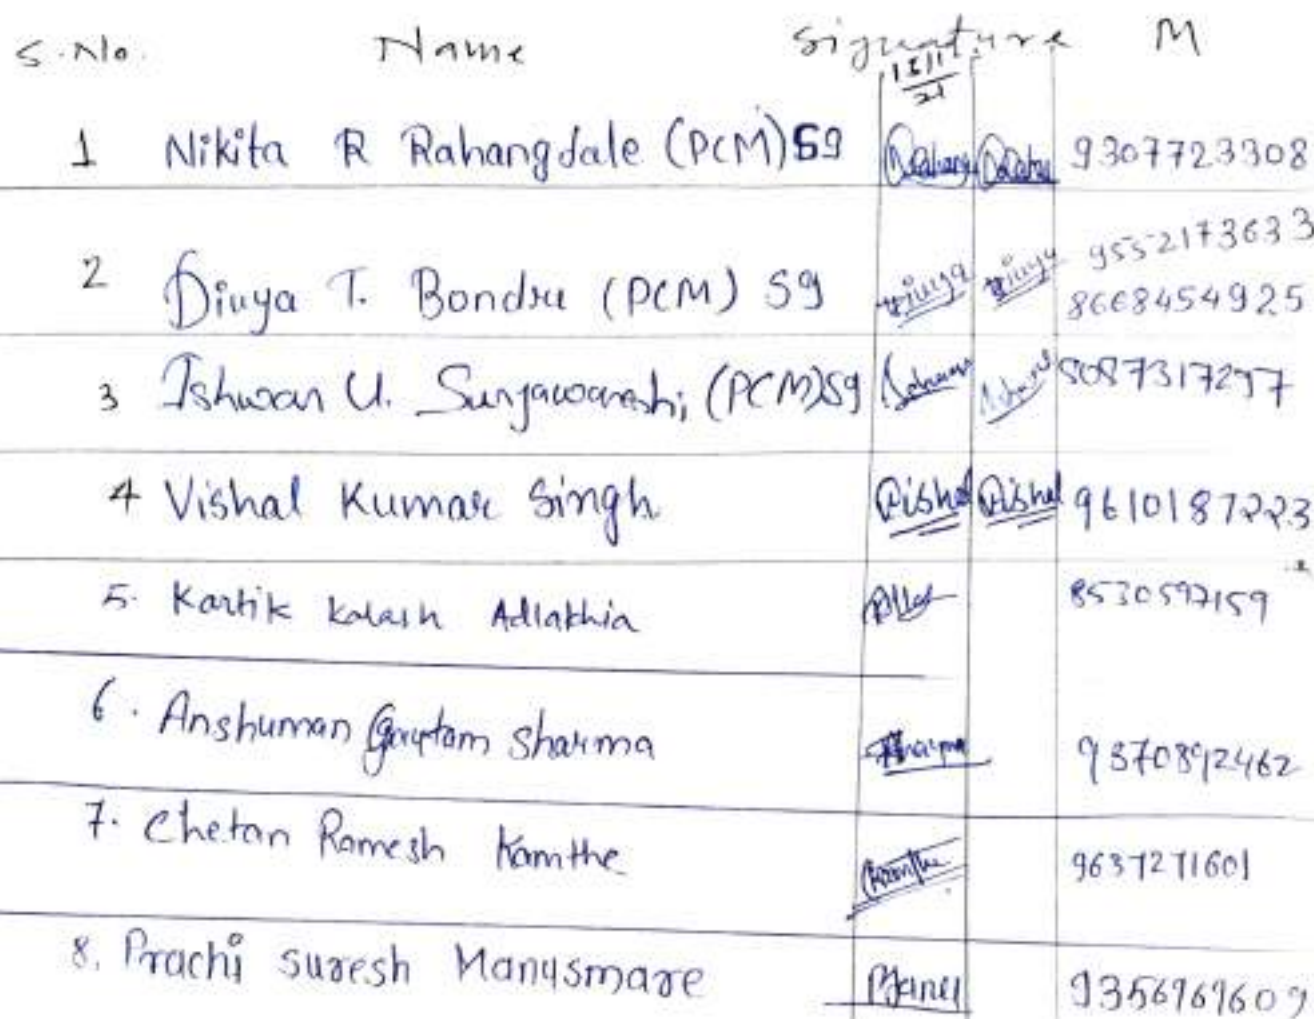 S.No. Name Signature M
15/11
21
1 Nikita R Rahangdale (PCM) S9 9307723308
2 Divya T. Bondre (PCM) S9 Divya Divya 9552173633
8668454925
3 Ishwar U. Suryawanshi (PCM) S9 8087317297
4 Vishal Kumar Singh Vishal Vishal 9610187223
5. Kartik Kalash Adlakhia 8530597159
6. Anshuman Gautam Sharma Sharma 9370892462
7. Chetan Ramesh Kamthe Kamthe 9637271601
8. Prachi Suresh Manusmare 9356969609